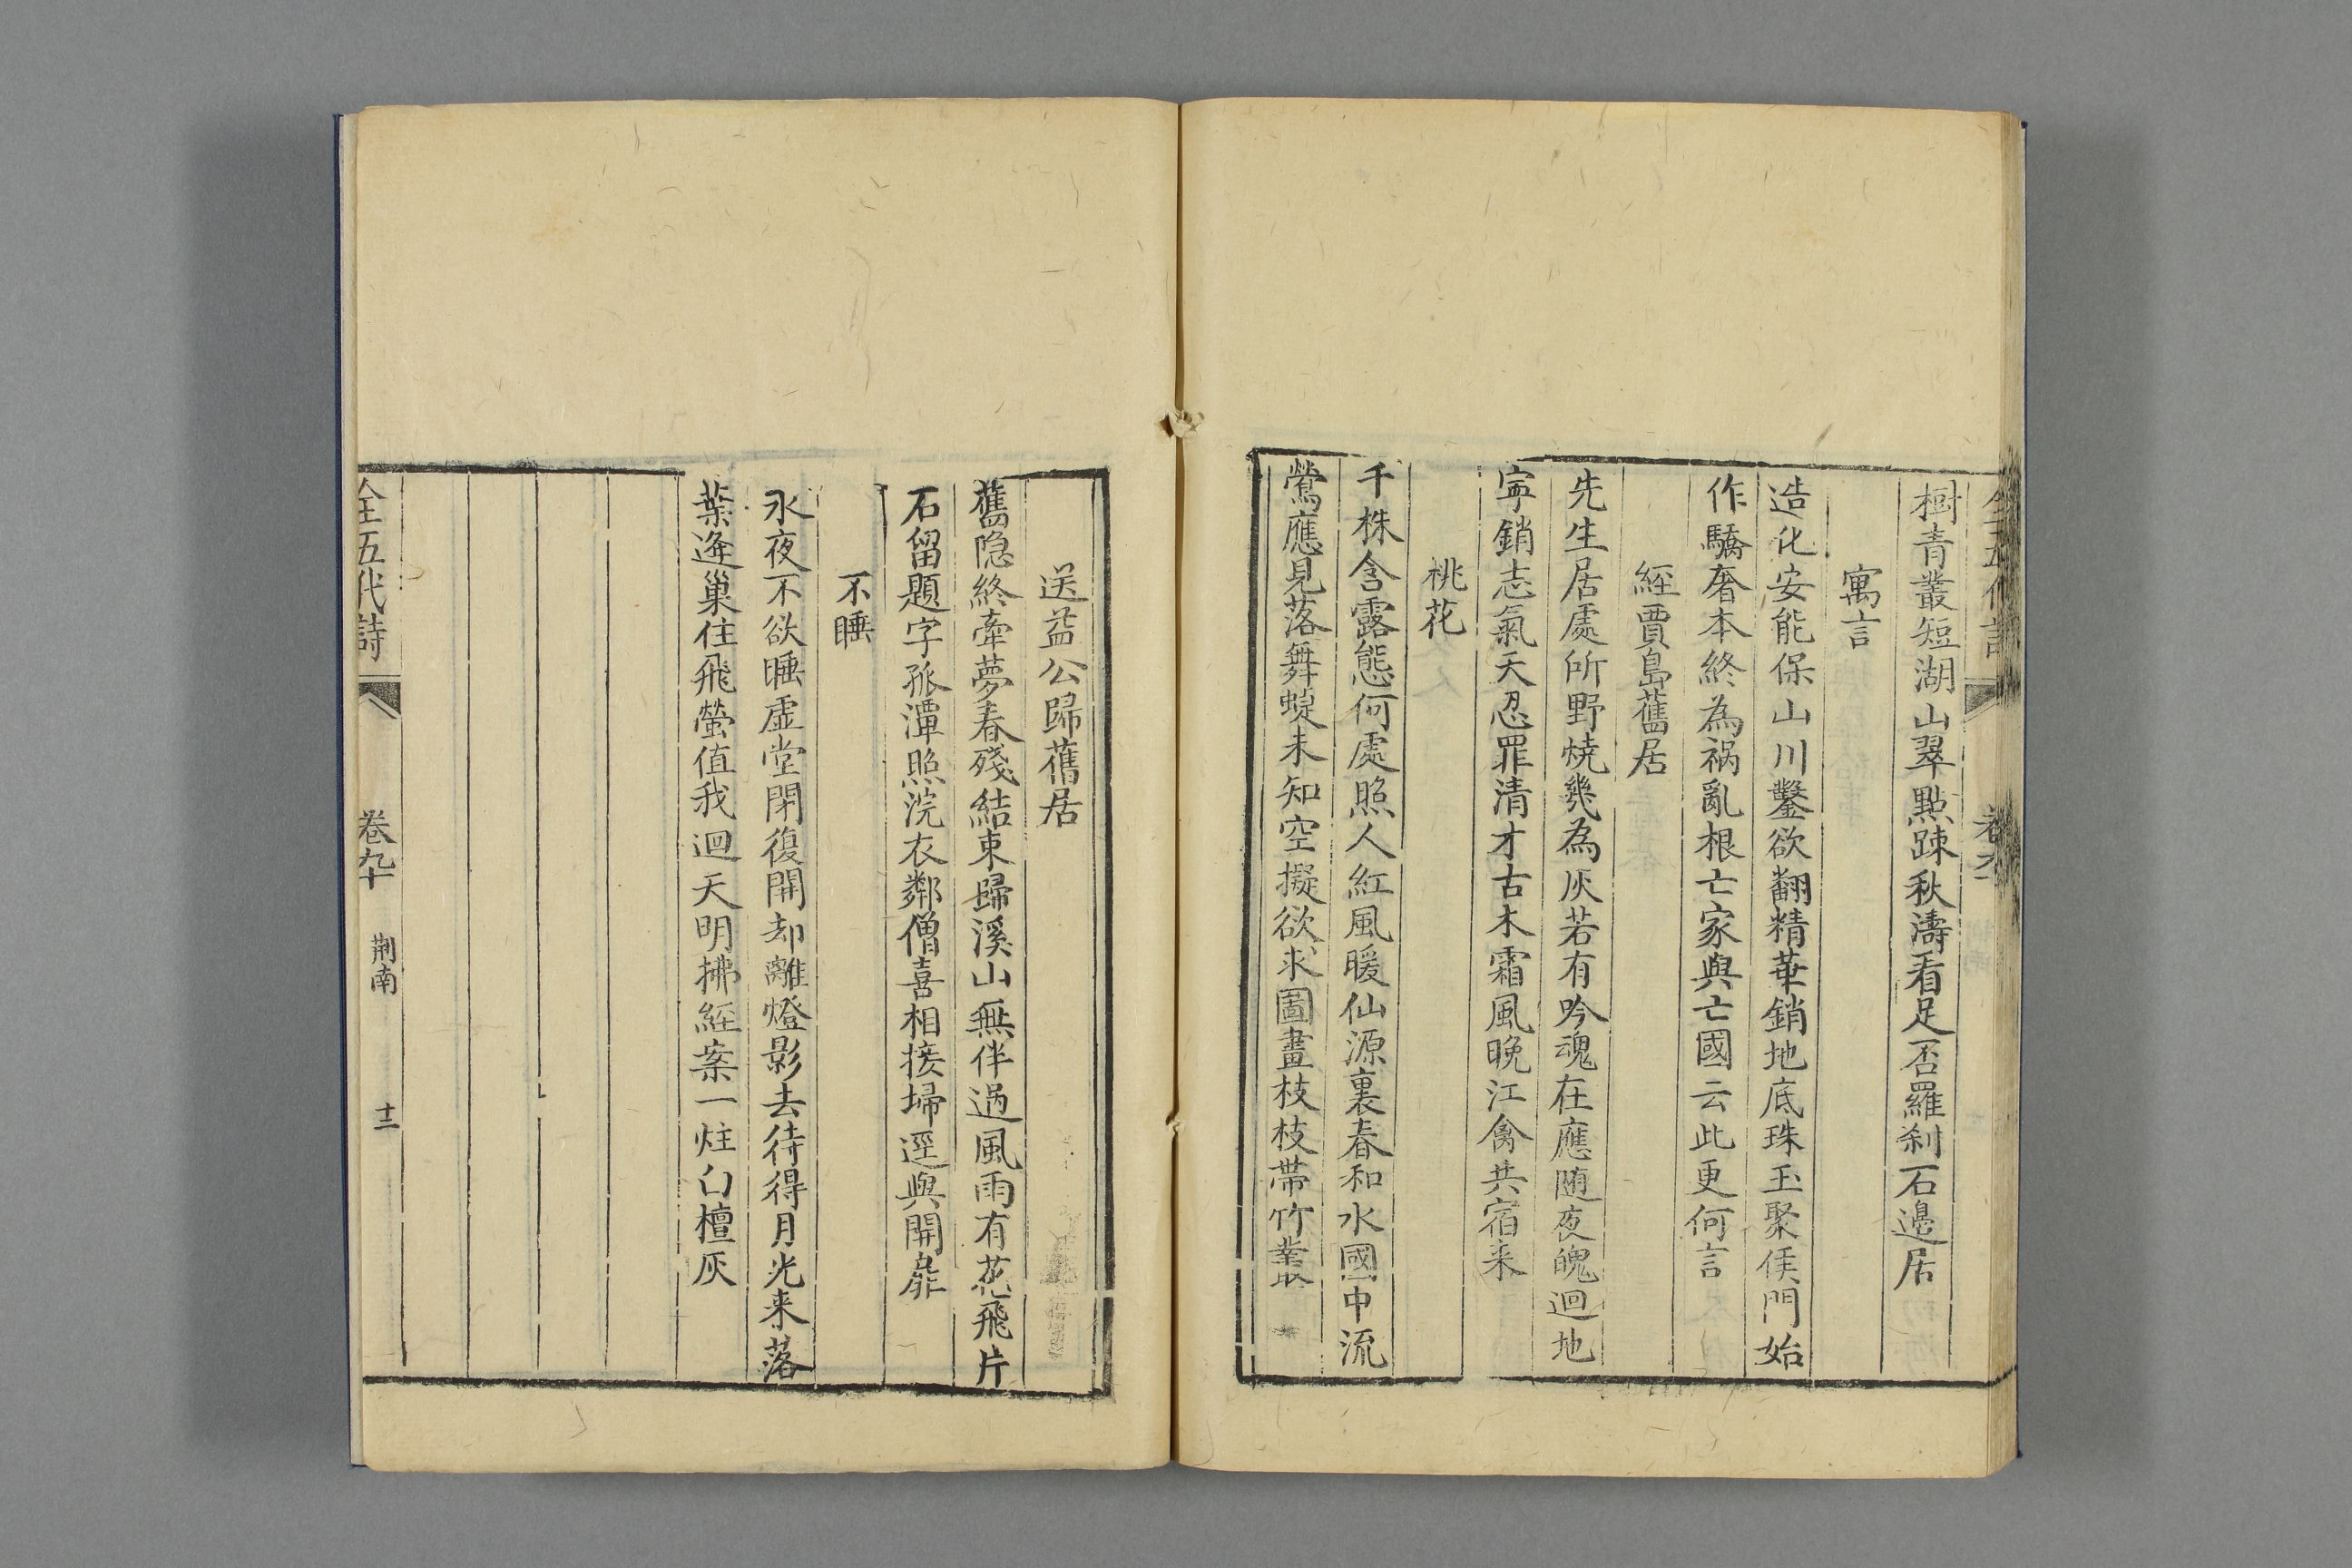 樹青叢短湖山翠點踈秋濤看足否羅刹石邊居
寓言
造化安能保山川鑿欲翻精華銷地底珠玉聚侯門始
作驕奢本終為禍亂根亡家與亡國云此更何言
經賈島舊居
先生居處所野燒幾為灰若有吟魂在應随夜魄迴地
寜銷志氣天忍罪清才古木霜風晚江禽共宿来
桃花
千株含露態何處照人紅風暖仙源裏春和水國中流
鶯應見落舞蝶未知空擬欲求圖畫枝枝帶竹叢
送益公歸舊居
舊隐終牽夢春殘結束歸溪山無伴過風雨有花飛片
石留題字孤潭照浣衣鄰僧喜相接掃逕與開扉
不睡
永夜不欲睡虚堂閉復開却離燈影去待得月光来落
葉逄巢住飛螢值我迴天明拂經案一炷白檀灰
全五代詩 卷九十 荆南 十三